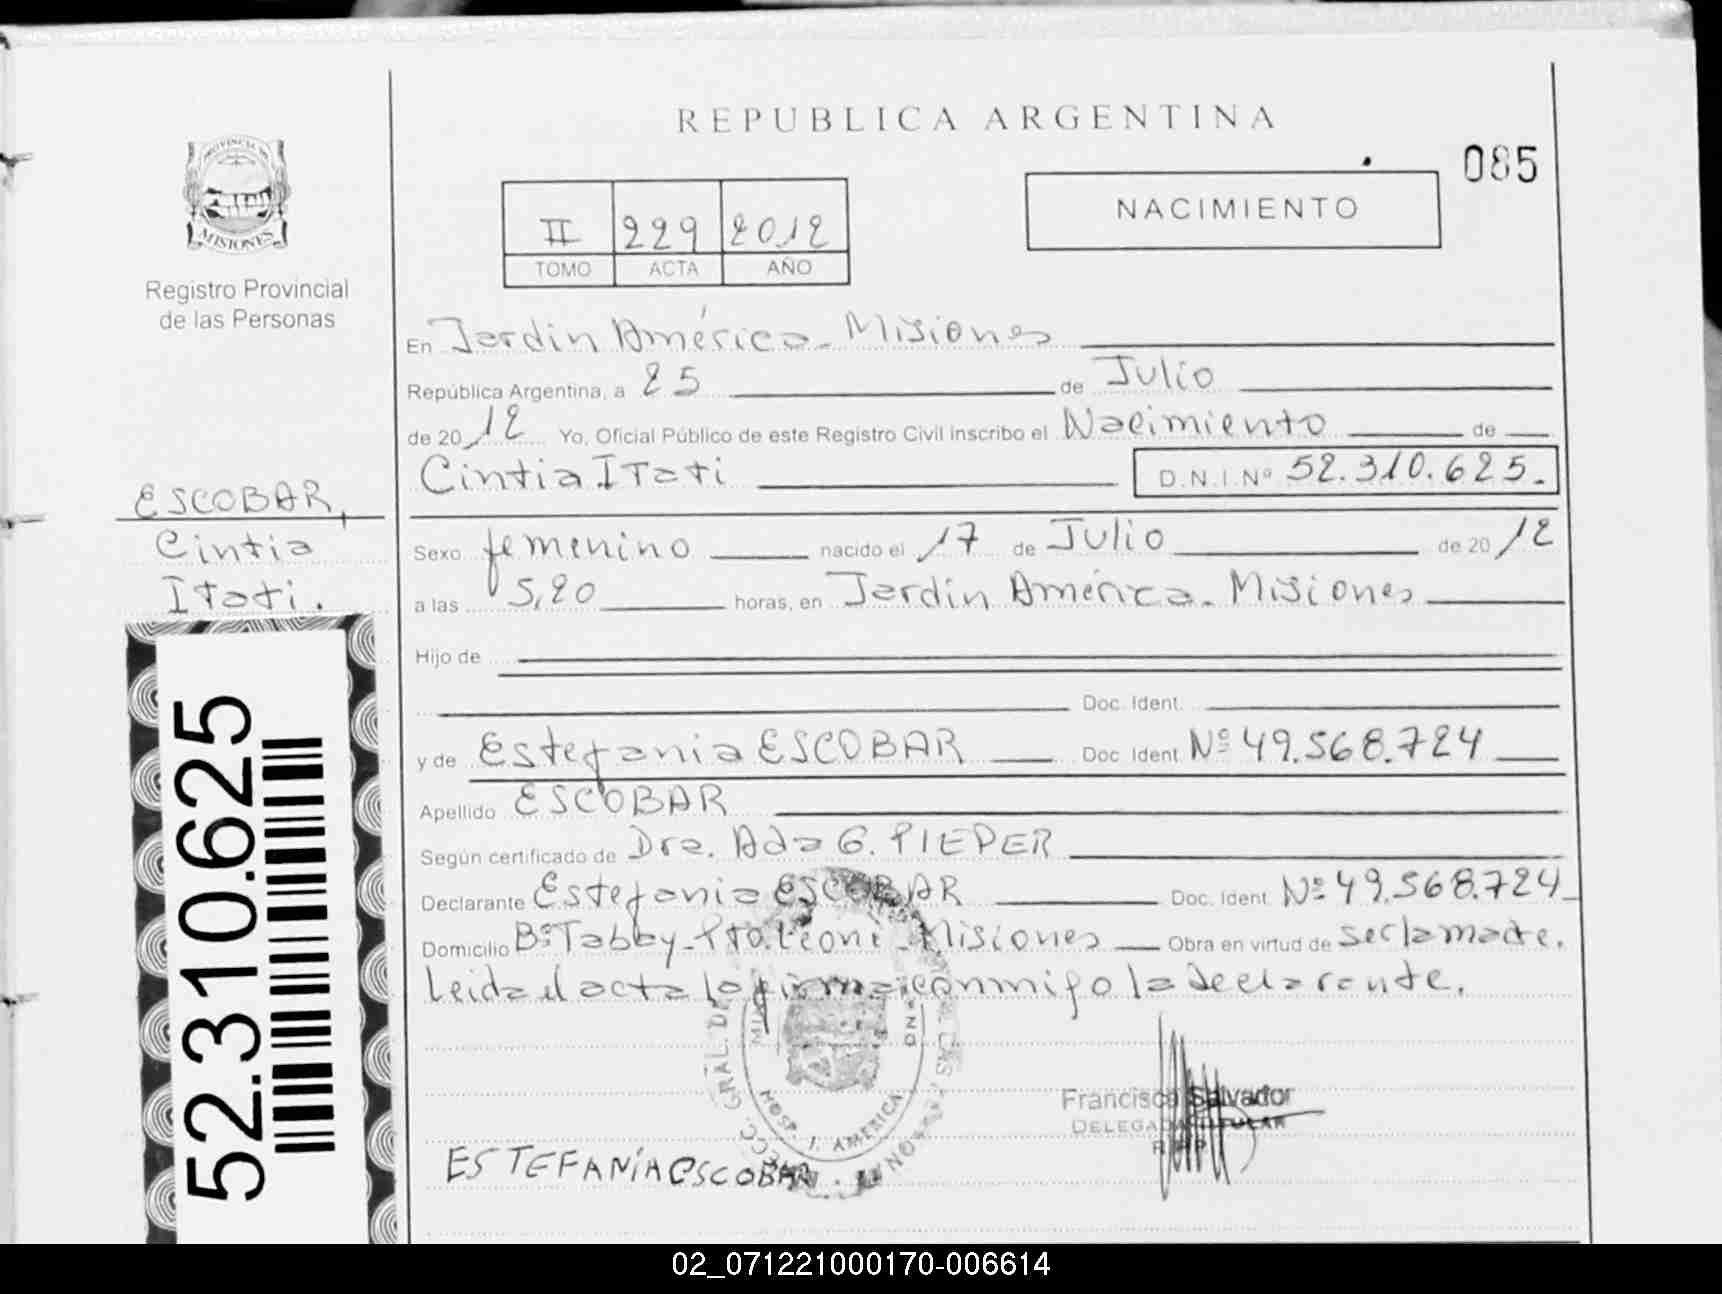 REPUBLICA ARGENTINA
085
NACIMIENTO
II 229 2012
TOMO ACTA AÑO
PROVINCIA DE
MISIONES
Registro Provincial
de las Personas
ESCOBAR,
Cintia
Itati.
52.310.625
En Jardin América. Misiones
República Argentina, a 25 de Julio
de 2012 Yo, Oficial Público de este Registro Civil inscribo el Nacimiento de
Cintia Itati D.N.I. Nº 52.310.625.
Sexo femenino nacido el 17 de Julio de 2012
a las 5,20 horas, en Jardín América. Misiones
Hijo de
Doc. Ident.
y de Estefania ESCOBAR Doc. Ident Nº 49.568.724
Apellido ESCOBAR
Según certificado de Dra. Ada G. PIEPER
Declarante Estefania ESCOBAR Doc. Ident. Nº 49.568.724
Domicilio Bº Tabby-Pto. Leoni-Misiones Obra en virtud de ser la madre.
Leida el acta la firma conmigo la declarante.
HOSP. J. AMERICA
Francisco Salvador
DELEGADO TITULAR
ESTEFANÍA ESCOBAR
02_071221000170-006614